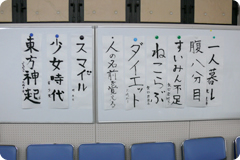 一人暮し
腹八分目
すいみん不足
ねこらぶ
ダイエット
人の名前覚える
スマイル
少女時代
東方神起